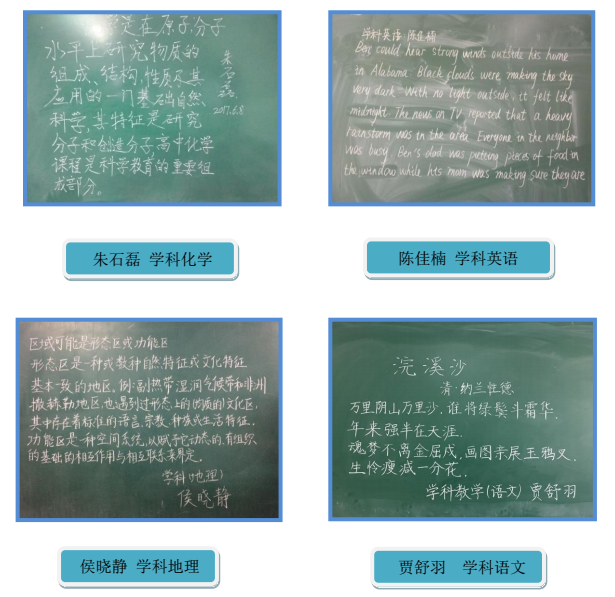 是在原子、分子
水平上研究物质的
组成、结构、性质及其
应用的一门基础自然
科学,其特征是研究
分子和创造分子高中化学
课程是科学教育的重要组
成部分。
朱石磊
2017.6.8
学科英语 陈佳楠
Ben could hear strong winds outside his home
in Alabama. Black clouds were making the sky
very dark. With no light outside, it felt like
midnight. The news on TV reported that a heavy
rainstorm was in the area. Everyone in the neighbor
was busy. Ben's dad was putting pieces of food in
the window while his mom was making sure they are
朱石磊 学科化学
陈佳楠 学科英语
区域可能是形态区或功能区
形态区是一种或数种自然特征或文化特征
基本一致的地区。例:副热带湿润气候带和非洲
撒赫勒地区,也遇到过形态上的均质的文化区,
其中存在着标准的语言、宗教、种族或生活特征。
功能区是一种空间系统,以赋予它动态的、有组织
的基础的相互作用与相互联系来界定。
学科(地理)
侯晓静
浣溪沙
清·纳兰性德
万里阴山万里沙,谁将绿鬓斗霜华,
年来强半在天涯.
魂梦不离金屈戌,画图亲展玉鸦叉.
生怜瘦减一分花.
学科教学(语文) 贾舒羽
侯晓静 学科地理
贾舒羽 学科语文